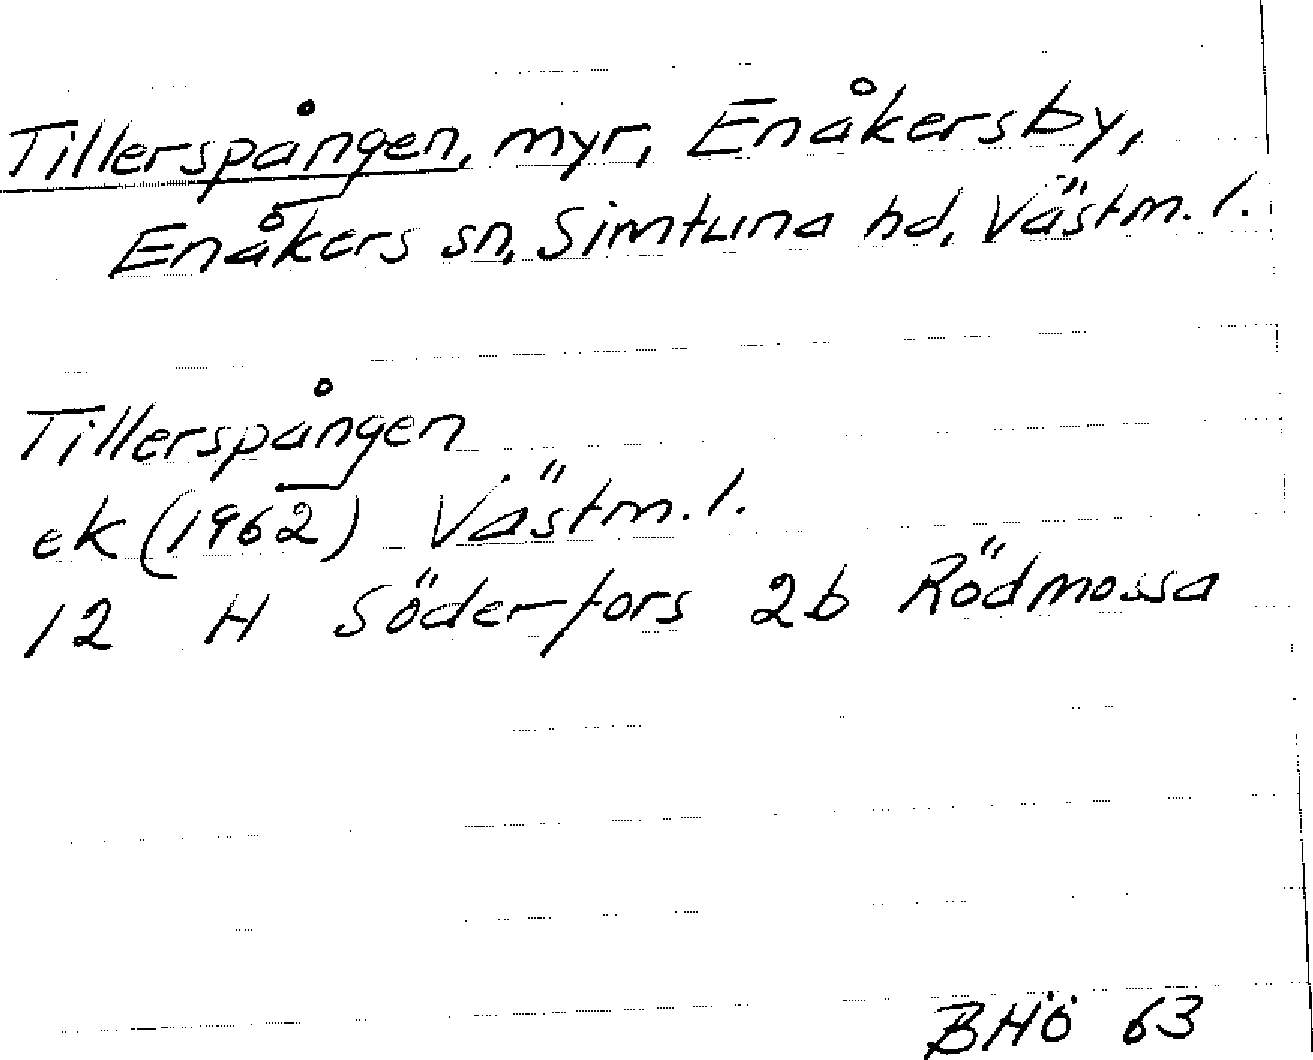 Tillerspången, myr, Enåkersby,
Enåkers sn, Simtuna hd, Västm. l.
Tillerspången
ek (1962) Västm. l.
12 H Söderfors 2b Rödmossa
BHÖ 63